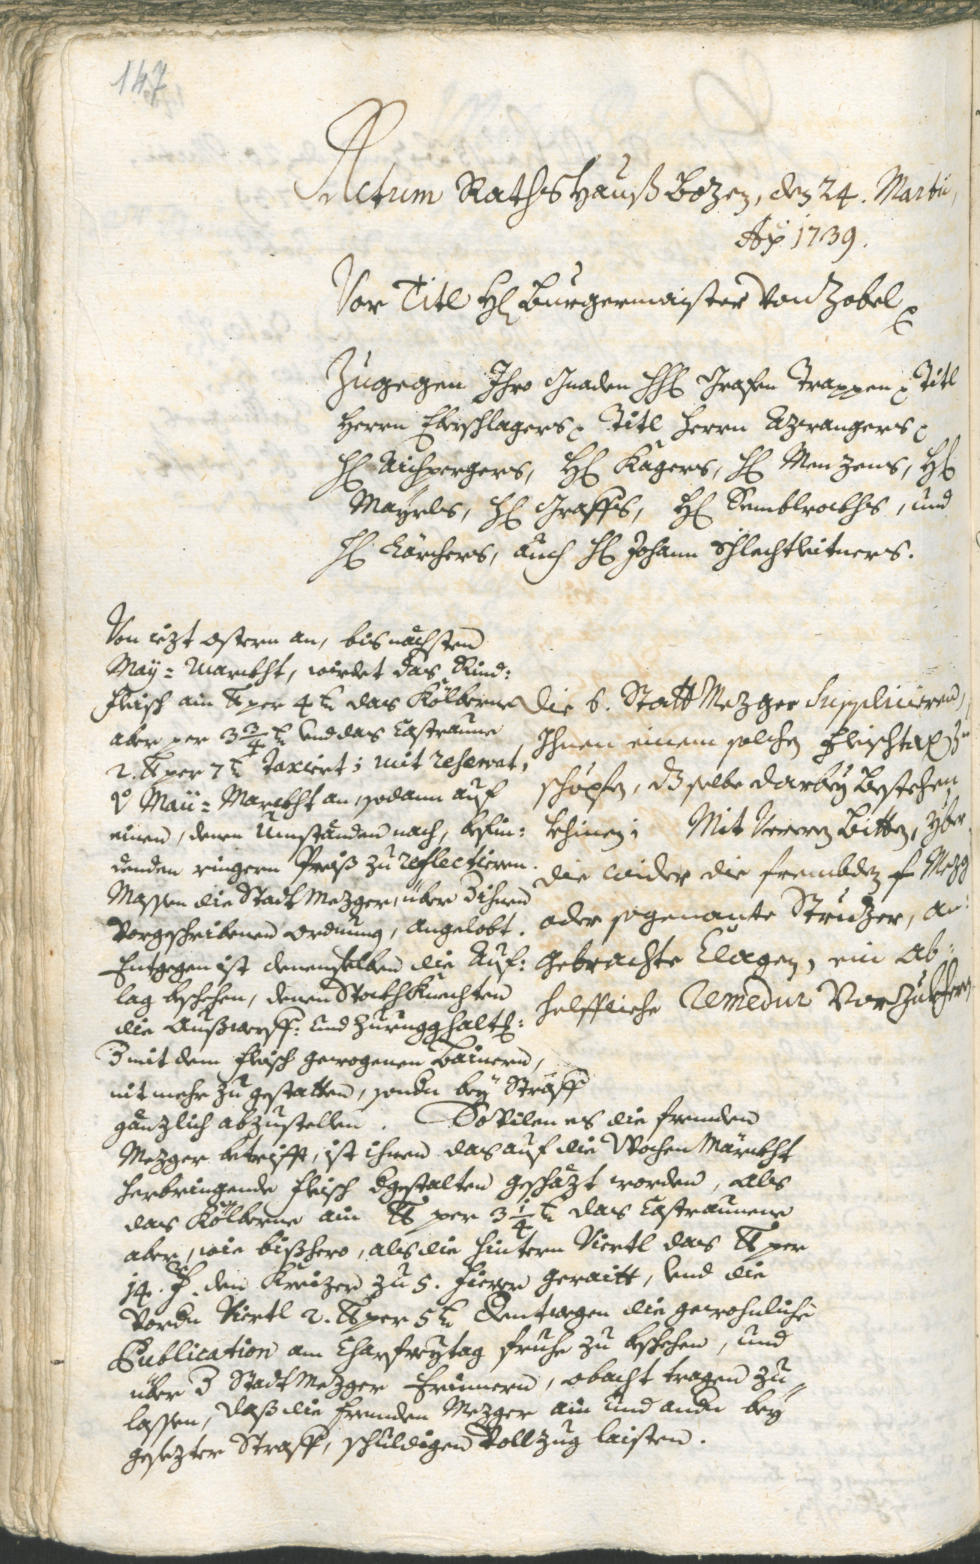 147
Actum RathsHauß Bozen, den 24. Martii,
Aõ 1739.
Vor Titl H: Burgermaister von Zobel
Zugegen Ihro Gnaden HH: Grafen Trappen, Titl
Herrn Eberschlagers, Titl Herrn Azwangers
H: Aichpergers, H: Kagers, H: Menzens, H:
Mayrls, H: Graffs, H: Semblrochs, und
H: Karchers, auch H: Johann Schlechtleitners.
Die b. Statt Mezger Supplicieren,
Ihnen einem solchen Fleischtax zu
schöpfen, dz selbe darbey bestehen
khinen; Mit ferern Bitten, yber
die wider die frembden Mezg
oder sogenante Strudzer, an:
gebrachte Clagen, ein ab=
helffliche Remedur vorzukheren
Von iezt Ostern an, bis nächsten
May=Marckht, wirdet das Rind:
fleisch ain ℔ per 4 k: das Kölberne
aber per 3 3/4 k: und das Castraune
2. ℔ per 7 k: Taxiert; mit reservat,
Maii=Marckht an, sodann auf
einen, denen Umständen nach, befin:
denden ringern Preiß zu reflectieren.
Massen die Statt Mezger, über ihnen
vorgeschribenen Ordnung, angelobt.
Entgegen ist denenselben die Auf:
lag beschehen, denen Knechten
die Außwerff: und Zurugghalt:
mit dem fleisch gewogenen Bainern,
nit mehr zu gestatten, sondern bey Straff
gänzlich abzustellen. Sovilen es die fremden
Mezger betrifft, ist ihnen das auf die Wochen Märckht
herbringende fleisch dergestalten geschäzt worden, als
das Kölberne ain ℔ per 3 1/4 k: das Castraunene
aber, wie bißhero, als die hintern Viertl das ℔ per
14. f. den Kreizer zu 5. fierer geraitt, und die
vordern Viertl 2. ℔ per 5 k: Dentwegen die gewohnliche
Publication am Charfreytag fruhe zu beschehen, und
über Statt Mezger Erinnern, obacht tragen zu
lassen, daß die fremden Mezger ain und andern bey
gesezter Straff, schuldigen Vollzug laisten.